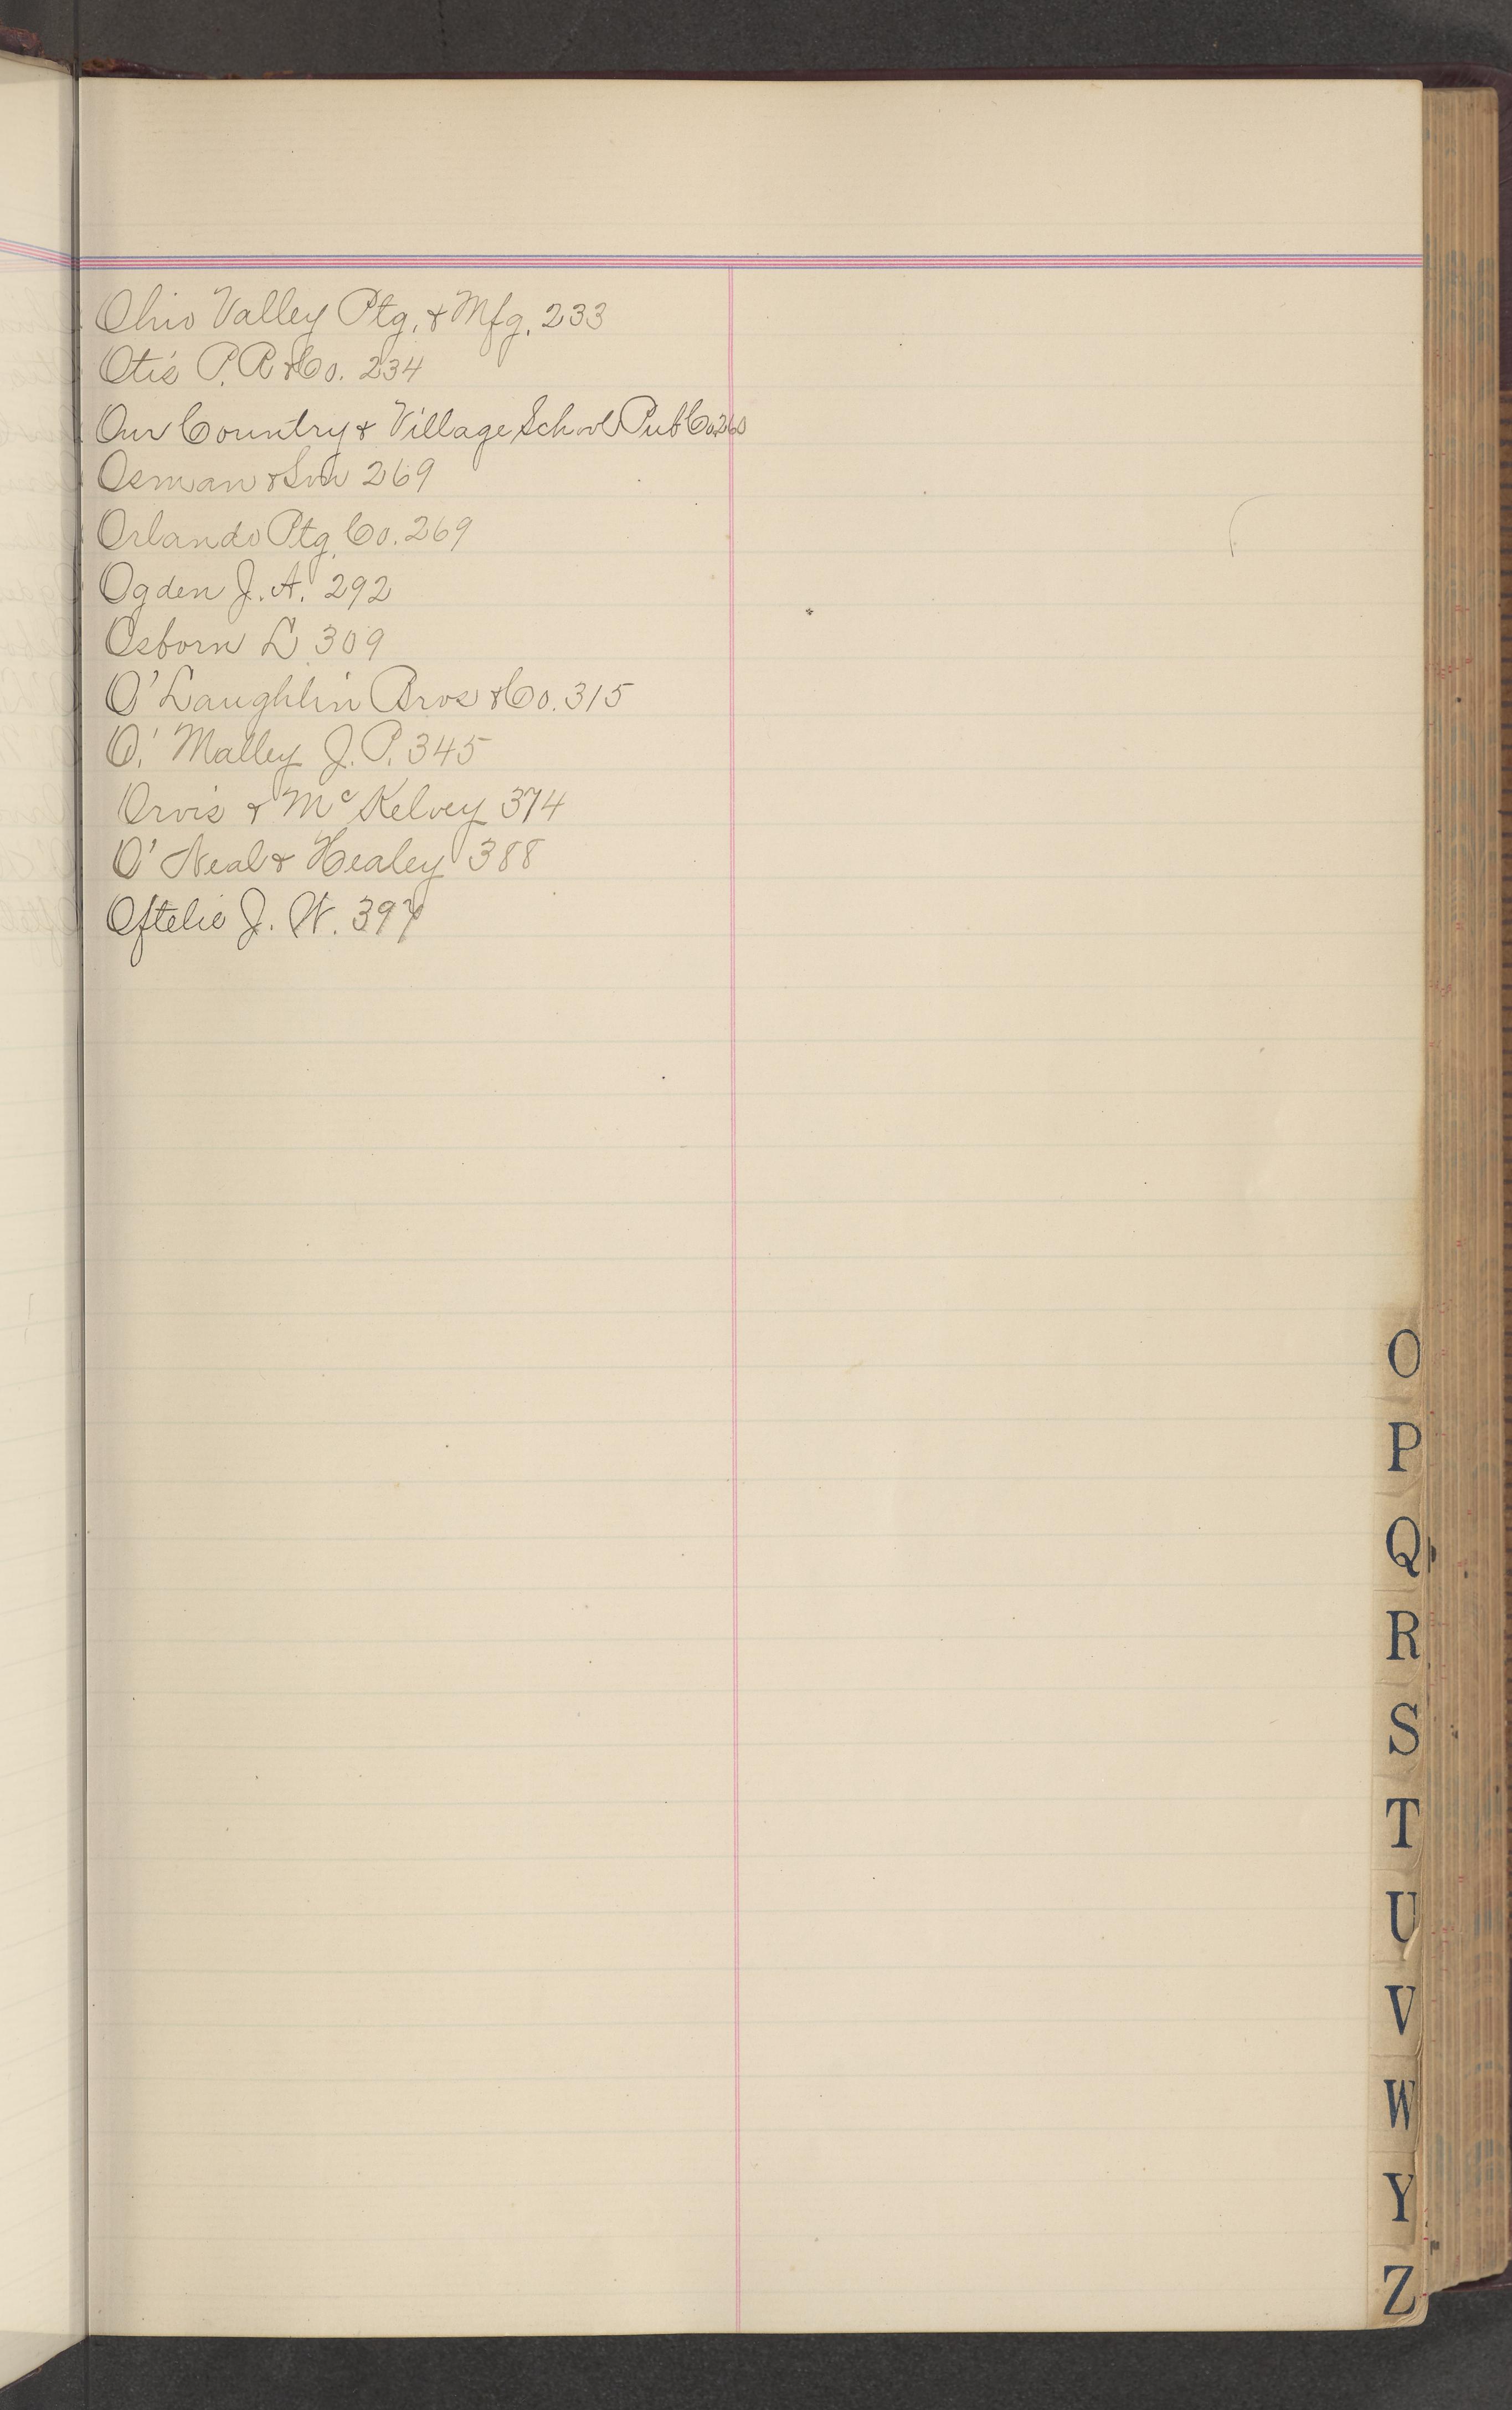 Ohio Valley Ptg. & Mfg. 233
Otis P. R & Co. 234
Our Country & Village School Pub Co. 260
Osman & Son 269
Orlando Ptg. Co. 269
Ogden J. A. 292
Osborn L 309
O'Laughlin Bros & Co. 315
O.' Malley J. P. 345
Orvis & Mc Kelvey 374
O' Neal & Healey 388
Oftelie J. W. 397
O
P
Q
R
S
T
U
V
W
Y
Z